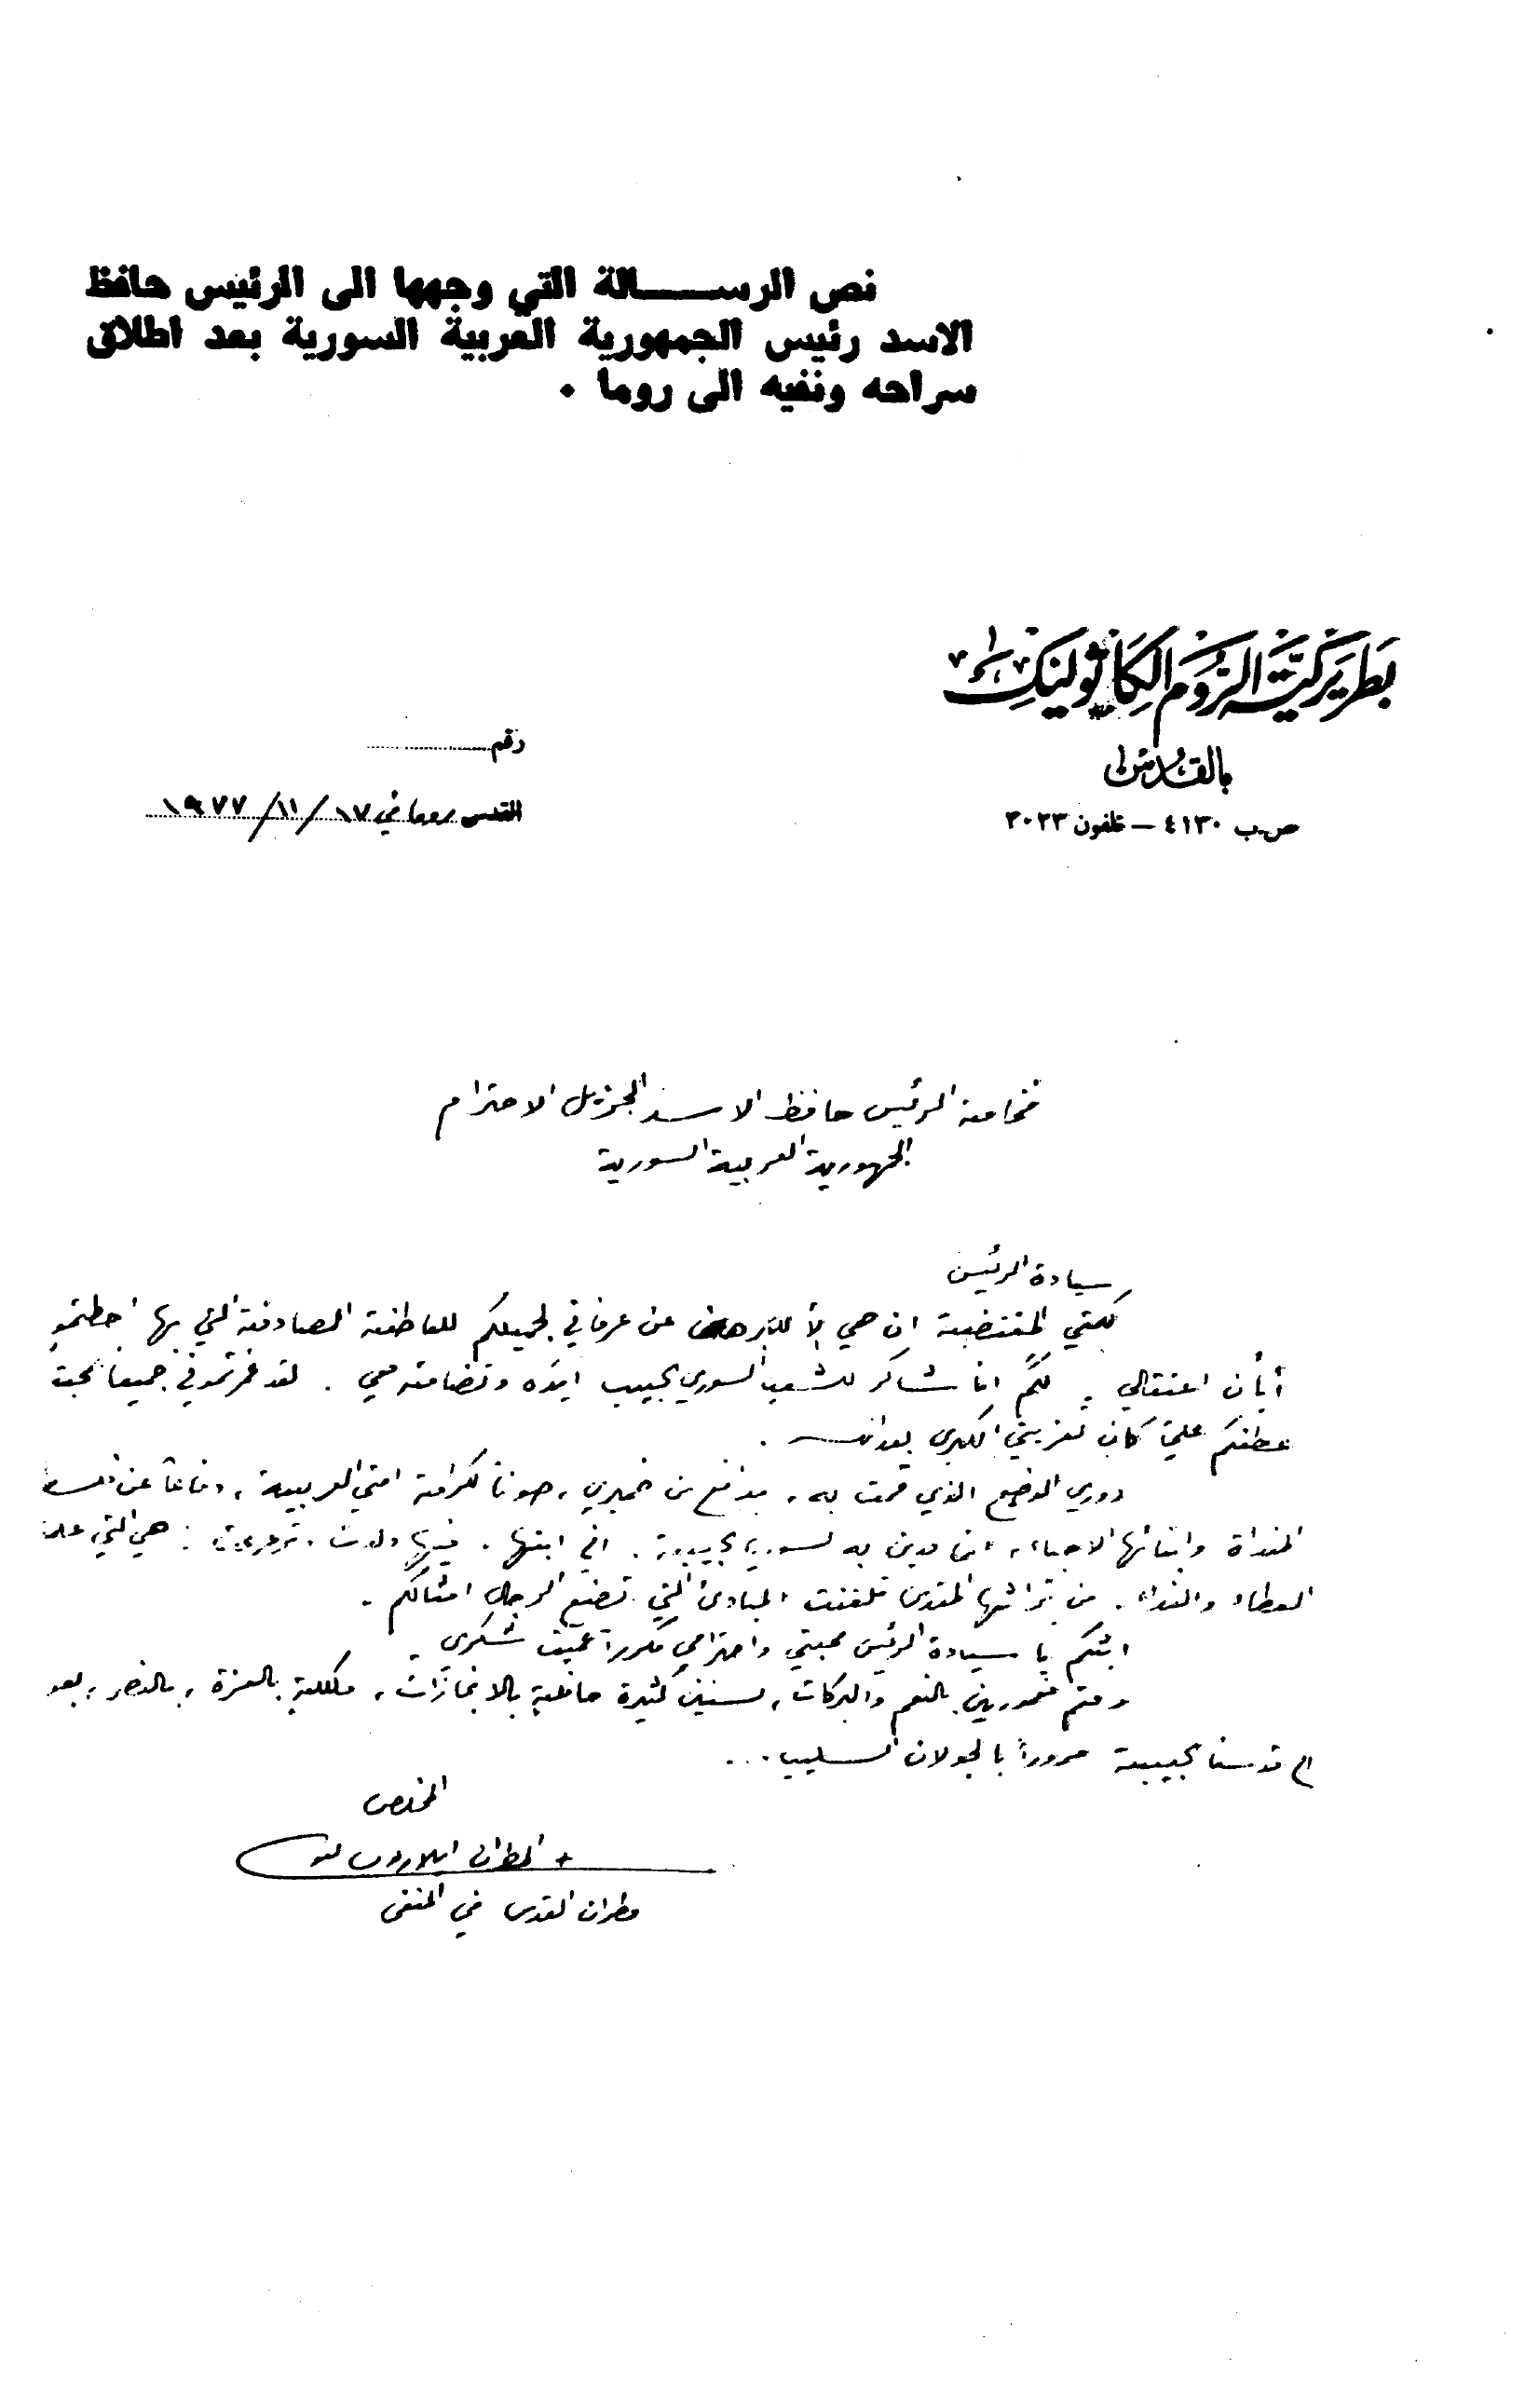 نص الرســـالة التي وجهها الى الرئيس حافظ
الاسد رئيس الجمهورية العربية السورية بعد اطلاق
سراحه ونفيه الى روما .
بَطريَركيّة الرُوم الكَاثوليَكِ
بالقدس
ص.ب ٤١٣٠ – تلفون ٣٠٢٣
رقم
القدس روما في ١٧/ ١١/ ١٩٧٧
فخامة الرئيس حافظ الاسد الجزيل الاحترام
الجمهورية العربية السورية
سيادة الرئيس
كلمتي المقتضبة ان هي الا للتبرهن عن عرفاني لجميلكم للعاطفة الصادقة التي بها احطتمو
أبان اعتقالي . لكم انا شاكر للشعب السوري الحبيب ايده وتضامنه معي . لقد غمرتموني جميعا بمحبة
عطفكم عليّ كان تعزيتي الكبرى بعد الله .
دوري الوضيع الذي قمت به ، بدافع من ضميري ، صونا لكرامة امتي العربية ، دفاعا عن
المفداة وابنائها الاحباء ، انما مدين به لسوريا الحبيبة . اني ابنها . فيها ولدت ، ترعرعت . هي التي
العطاء والفداء . من تراثها المقدس تلقنت المبادئ التي تصنع الرجال امثالكم .
ابثكم يا سيادة الرئيس محبتي واحترامي مكررا عميق شكري .
ودمتم مغمورين بالنعم والبركات ، لسنين كثيرة حافلة بالانجازات ، مكللة بالعزة ، بالنصر ،
قدسنا الحبيبة مروراً بالجولان السليب ...
المخلص
+ المطران ايلاريون
مطران القدس في المنفى